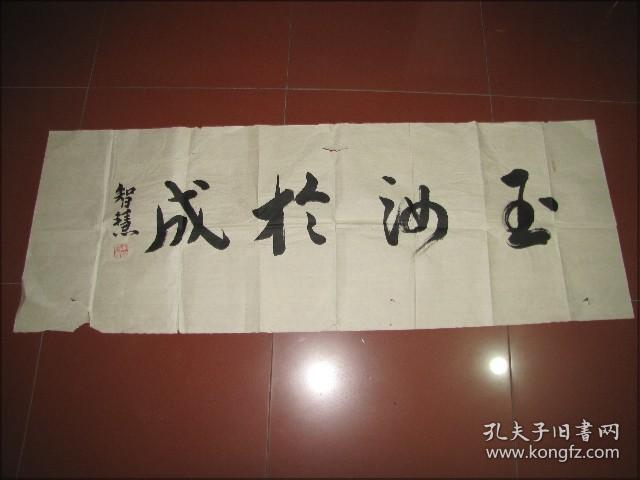 玉汝於成
智慧
孔夫子旧書网
www.kongfz.com